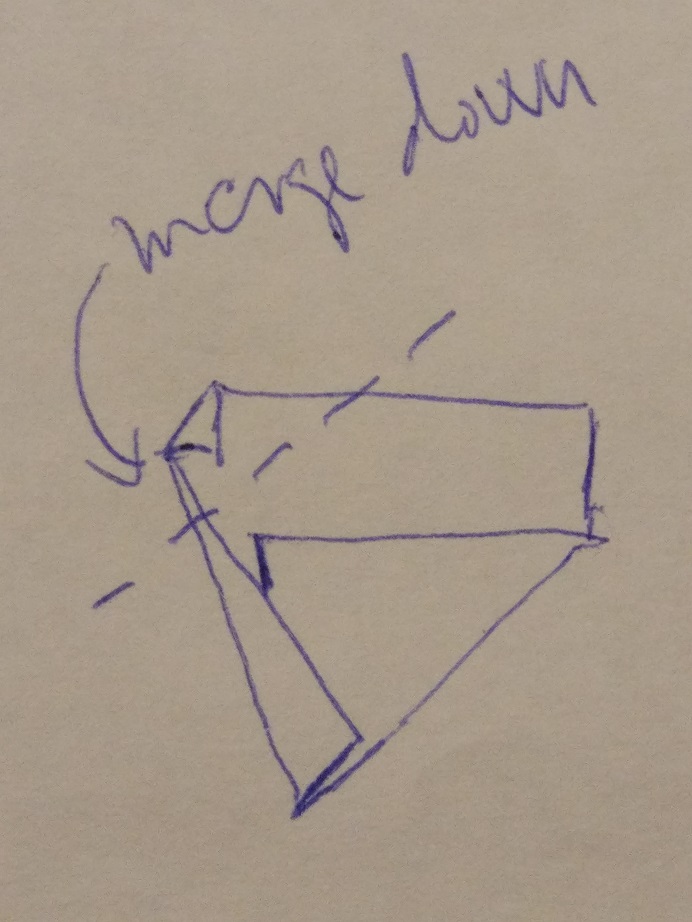 merge down